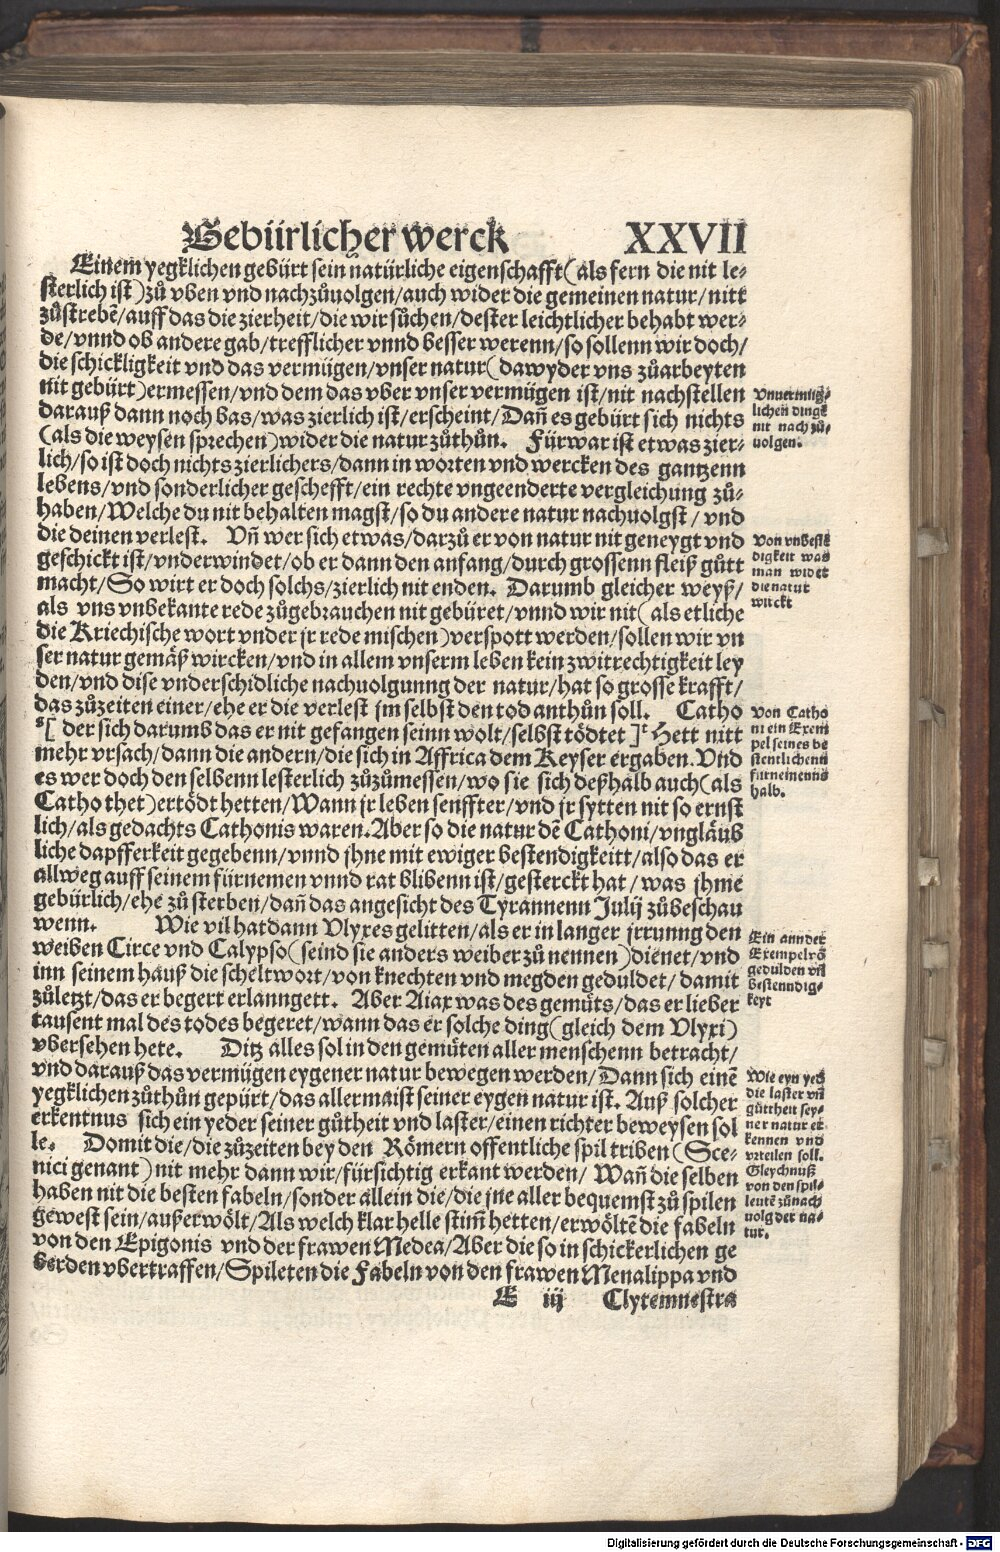 Gebürlicher werck XXVII
Einem yegklichen gebürt sein natürliche eigenschafft (als fern die nit le-
sterlich ist) zů vben vnd nachzůuolgen/auch wider die gemeinen natur/nitt
zůstrebē/auff das die zierheit/die wir sůchen/dester leichtlicher behabt wer-
de/vnnd ob andere gab/trefflicher vnnd besser werenn/so sollenn wir doch/
die schickligkeit vnd das vermügen/vnser natur (dawyder vns zůarbeyten
nit gebürt) ermessen/vnd dem das vber vnser vermügen ist/nit nachstellen
darauß dann noch bas/was zierlich ist/erscheint/Dañ es gebürt sich nichts
(als die weysen sprechen) wider die natur zůthůn. Fürwar ist etwas zier-
lich/so ist doch nichts zierlichers/dann in worten vnd wercken des gantzenn
lebens/vnd sonderlicher geschefft/ein rechte vngeenderte vergleichung zů-
haben/Welche du nit behalten magst/so du andere natur nachuolgst/vnd
die deinen verlest. Vñ wer sich etwas/darzů er von natur nit geneygt vnd
geschickt ist/vnderwindet/ob er dann den anfang/durch grossenn fleiß gůtt
macht/So wirt er doch solchs/zierlich nit enden. Darumb gleicher weyß/
als vns vnbekante rede zůgebrauchen nit gebüret/vnnd wir nit (als etliche
die Kriechische wort vnder jr rede mischen) verspott werden/sollen wir vn
ser natur gemäß wircken/vnd in allem vnserm leben kein zwitrechtigkeit ley
den/vnd dise vnderschidliche nachuolgunng der natur/hat so grosse krafft/
das zůzeiten einer/ehe er die verlest jm selbst den tod anthůn soll. Catho
[ der sich darumb das er nit gefangen seinn wolt/selbst tödtet ] Hett nitt
mehr vrsach/dann die andern/die sich in Affrica dem Keyser ergaben. Vnd
es wer doch den selbenn lesterlich zůzůmessen/wo sie sich deßhalb auch (als
Catho thet) ertödt hetten/Wann jr leben senffter/vnd jr sytten nit so ernst
lich/als gedachts Cathonis waren. Aber so die natur dē Cathoni/vngläub
liche dapfferkeit gegebenn/vnnd jhne mit ewiger bestendigkeitt/also das er
allweg auff seinem fürnemen vnnd rat blibenn ist/gesterckt hat/was jhme
gebürlich/ehe zů sterben/dañ das angesicht des Tyrannenn Julij zůbeschau
wenn. Wie vil hat dann Vlyxes gelitten/als er in langer jrrunng den
weiben Circe vnd Calypso (seind sie anders weiber zů nennen) dienet/vnd
inn seinem hauß die scheltwort/von knechten vnd megden geduldet/damit
zůletzt/das er begert erlanngett. Aber Aiax was des gemůts/das er lieber
tausent mal des todes begeret/wann das er solche ding (gleich dem Vlyxi)
vbersehen hete. Ditz alles sol in den gemůten aller menschenn betracht/
vnd darauß das vermügen eygener natur bewegen werden/Dann sich einē
yegklichen zůthůn gepürt/das allermaist seiner eygen natur ist. Auß solcher
erkentnus sich ein yeder seiner gůtheit vnd laster/einen richter beweysen sol
le. Domit die/die zůzeiten bey den Römern offentliche spil triben (Sce-
nici genant) nit mehr dann wir/fürsichtig erkant werden/Wañ die selben
haben nit die besten fabeln/sonder allein die/die jne aller bequemst zů spilen
gewest sein/außerwölt/Als welch klar helle stim̃ hetten/erwöltē die fabeln
von den Epigonis vnd der frawen Medea/Aber die so in schickerlichen ge
berden vbertraffen/Spileten die Fabeln von den frawen Menalippa vnd
E iij Clytemnestra
Vnuermüg-
lichen dingē
nit nach zů-
uolgen.
Von vnbestē
digkeit was
man wider
die natur
wirckt
Von Catho
ni ein Exem
pel seines be
stentlichenn
fürneinenns
halb.
Ein annder
Exempel vō
gedulden vñ
Bestenndig-
keyt
Wie eyn yed
die laster vñ
gůttheit sey-
ner natur er
kennen vnd
vrteilen soll.
Gleychnuß
von den spil-
leutē zůnach
uolg der na-
tur.
Digitalisierung gefördert durch die Deutsche Forschungsgemeinschaft - DFG